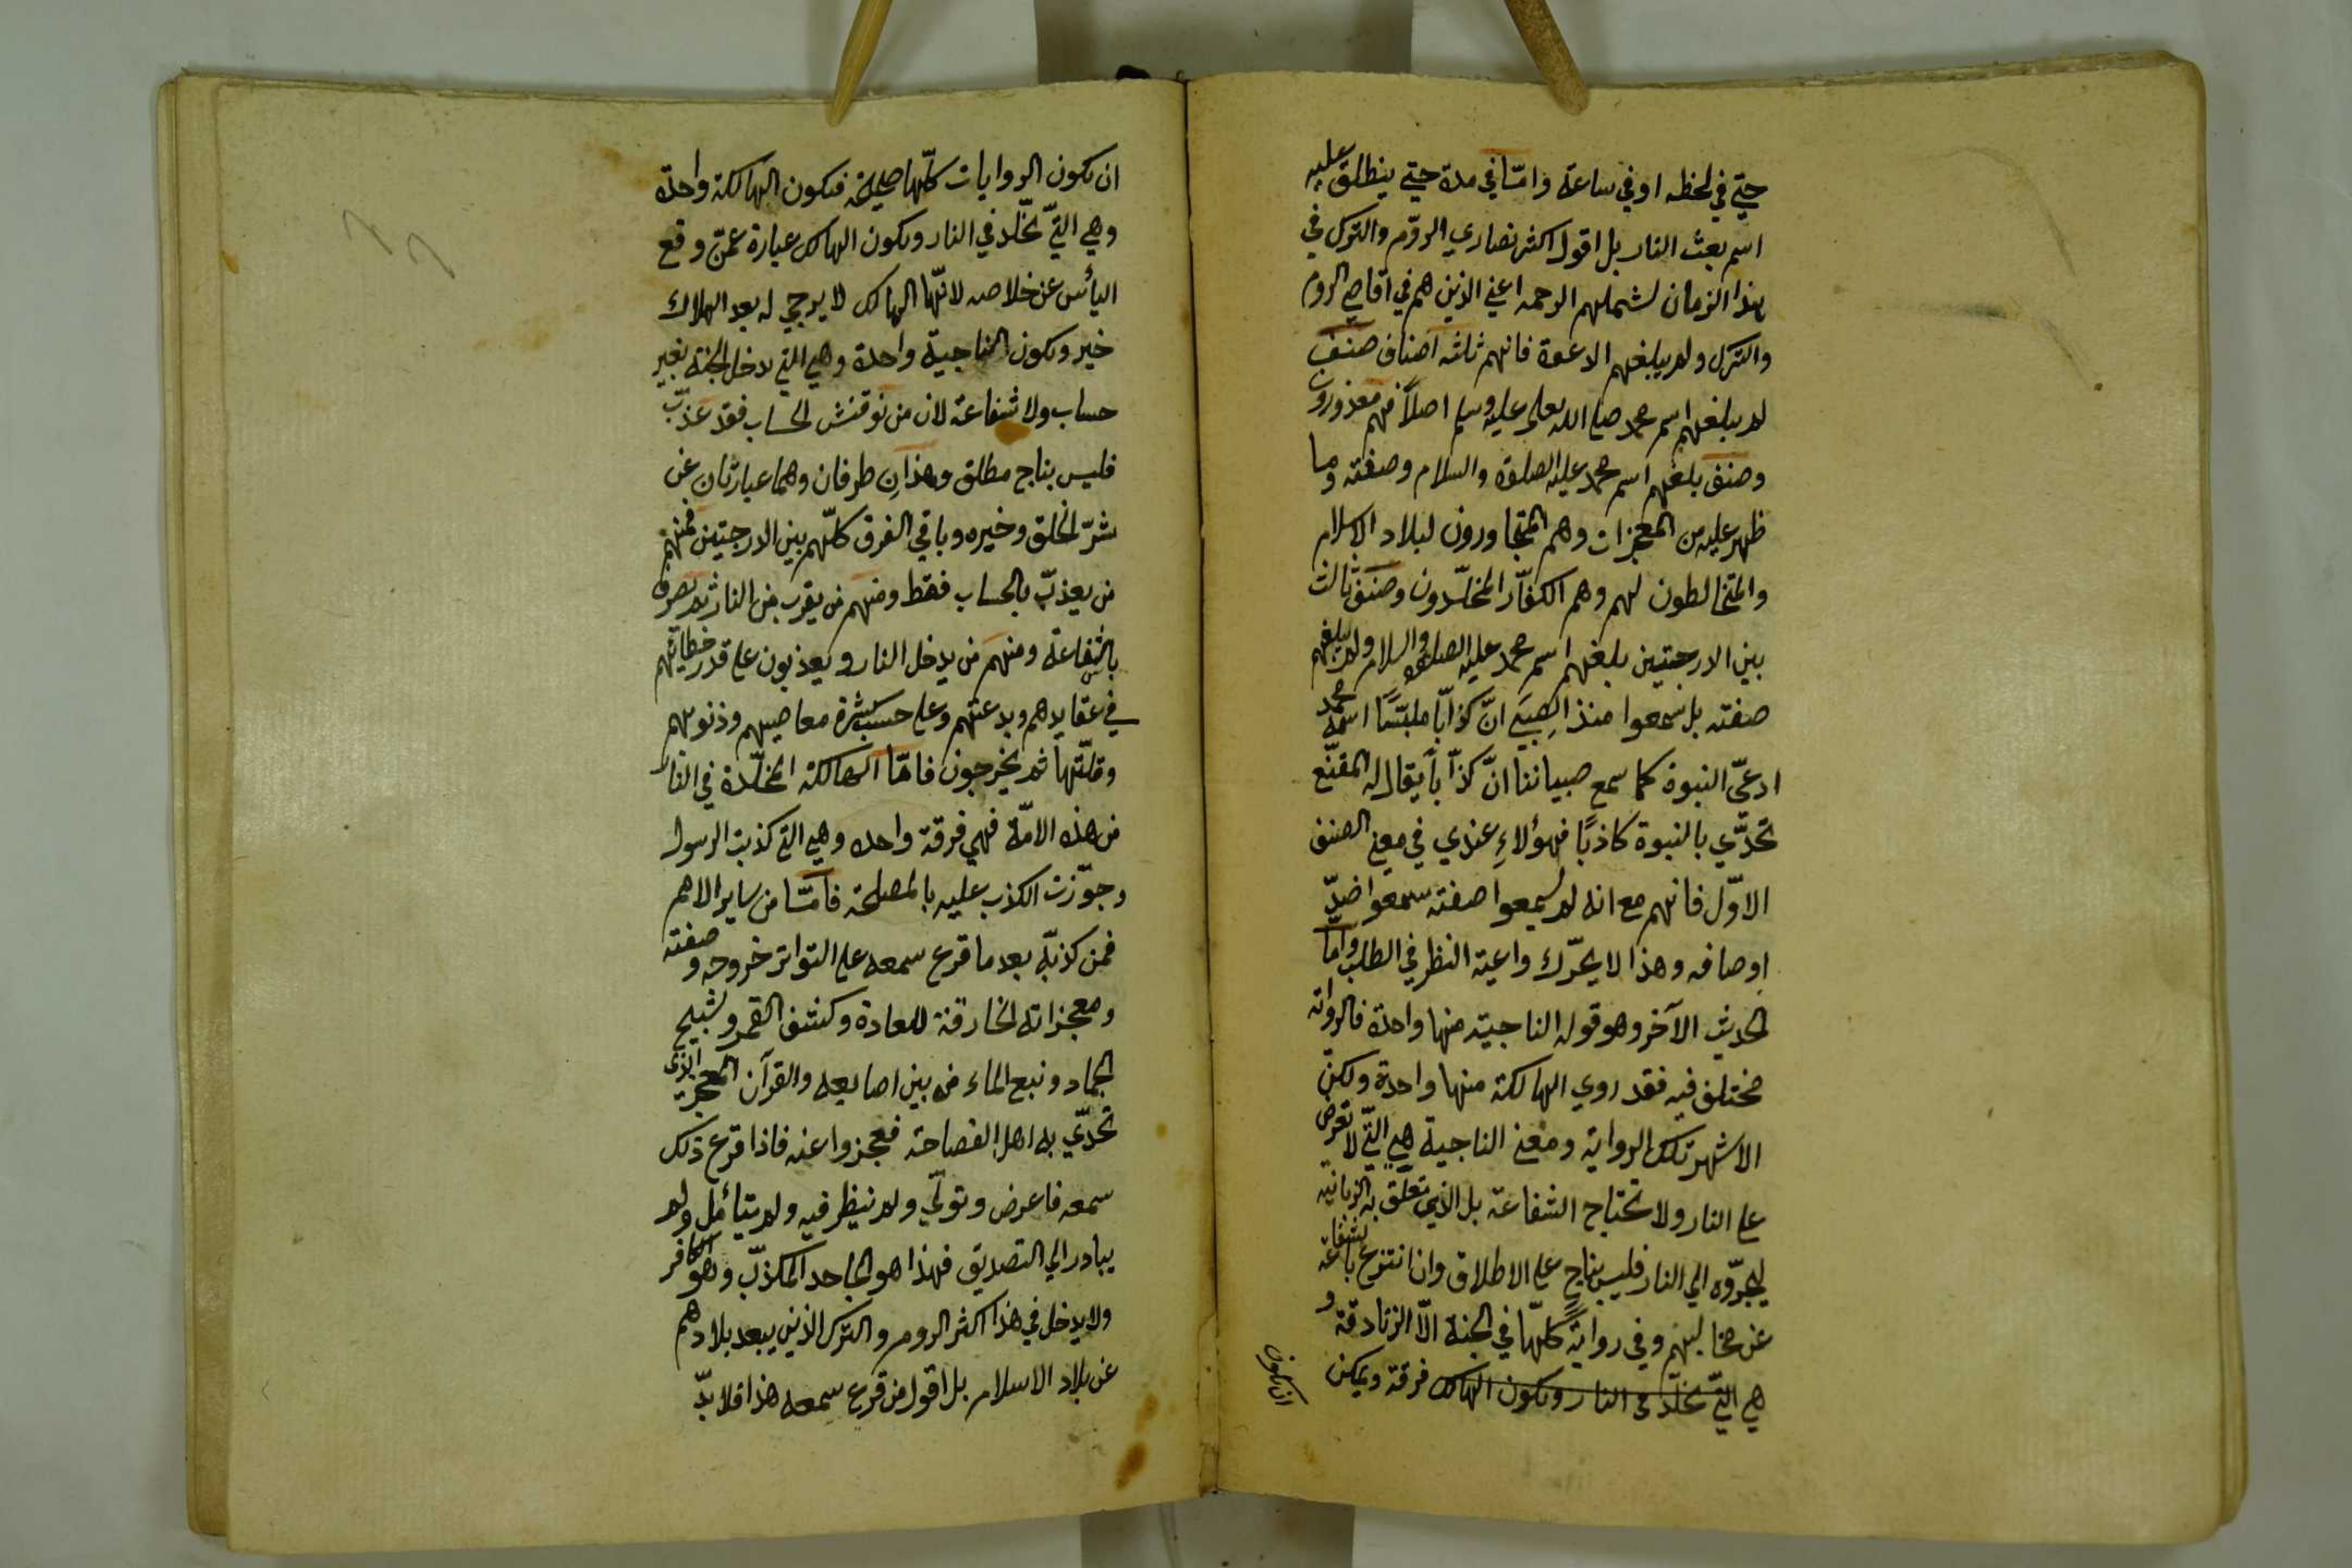 حتي في لحظه او في ساعة وامّا في مدة حتي ينطلق عليه
اسم بعث النار بل اقول اكثر نصاري الروّم والترك في
هذا الزمان لشملهم الرحمه اعني الذين هم في اقاصي الروم
والترك ولم يبلغهم الدعوة فانهم ثلثه اصناف صنف
لم يبلغهم اسم محمد صلي الله تعلي عليه وسلم اصلاً فهم معذورون
وصنف بلغهم اسم محمد عليه الصلوة والسلام وصفته وما
ظهر عليه من المعجزات وهم المتجاورون لبلاد الاسلام
والمتخالطون لهم وهم الكفّار المخلّدون وصنف ثالث
بين الدرجتين بلغهم اسم محمد عليه الصلوة والسلام ولم يبلغهم
صفته بل سمعوا منذ الصِبيَ انّ كذاباً ملبّسًا اسمه محمد
ادعيّ النبوة كما سمع صبياننا انّ كذاّباً يقال له المقنّع
تحدّي بالنبوة كاذبًا فهؤلاءِ عندي في معني الصنف
الاوّل فانهم مع انه لم يسمعوا صفته سمعوا ضدّ
اوصافه وهذا لا يحرّك داعية النظر في الطلب وامّا
الحديث الآخر وهو قوله الناجية منها واحدة فالرواته
مختلف فيه فقد روي الهالكة منها واحدة ولكن
الاشهر تلك الرواية ومعني الناجية هي التّي لا تعرض
علي النار ولا تحتاج الشفاعة بل الذي تعلّق به الزبانيه
ليجرّوه الي النار فليس بناجٍ علي الاطلاق وان انتزع بالشفاعة
عن مخالبهم وفي روايةٍ كلّهّا في الجنة الاّ الزنادقة و
هي التّي تخلّد في النار ويكون الهالك فرقة ويمكن
ان يكون
ان يكون الروايات كلّها صحيحة فيكون الهالكة واحدة
وهي التّي تخلّد في النار ويكون الهالك عبارة عمّن وقع
اليأس عن خلاصه لانّها الهالك لا يرجي له بعد الهلاك
خير ويكون الناجية واحدة وهي التي تدخل الجنة بغير
حساب ولا شفاعة لان من نوقش الحساب فقد عذّب
فليس بناج مطلق وهذانِ طرفان وهما عبارتان عن
شرّ الخلق وخيره وباقي الفرق كلّهم بين الدرجتين فمنهم
من يعذبّ بالحساب فقط ومنهم من يقرب من النار ثم يصرف
بالشفاعة ومنهم من يدخل النار ويعذبون علي قدر خطاياهم
في عقايدهم وبدعتهم وعلي حسب كثرة معاصيهم وذنوبهم
وقلّتها ثم يخرجون فامّا الهالكة المخلّدة في النار
من هذه الامّة فهي فرقة واحده وهي التي كذبت الرسول
وجوّزت الكذب عليه بالمصلحة فامّا من ساير الامم
فمن كذبّه بعد ما قرع سمعه علي التواتر خروجه وصفته
ومعجزاته الخارقة للعادة وكشف القمر وتسبيح
الجماد ونبع الماء من بين اصابعه والقرآن المعجز الذي
تحدّي به اهل الفصاحة فعجزوا عنه فاذا قرع ذلك
سمعه فاعرض وتولّي ولم ينظر فيه ولم يتأمل ولم
يبادر الي التصديق فهذا هو الجاحد المكذبّ وهو الكافر
ولا يدخل في هذا اكثر الروم والترك الذين يبعد بلادهم
عن بلاد الاسلام بل اقول من قرع سمعه هذا فلا بدّ